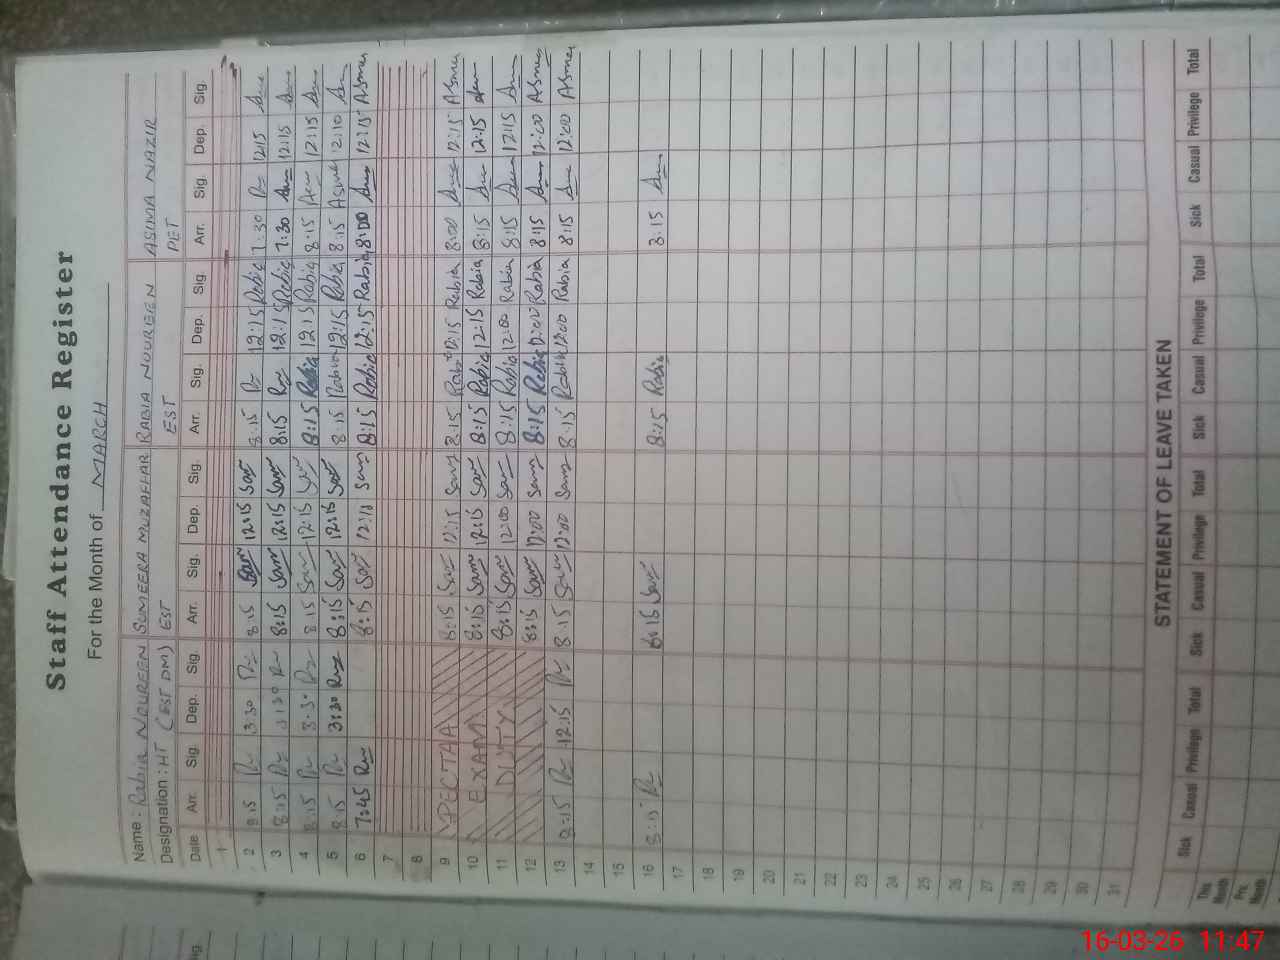 Staff Attendance Register
For the Month of MARCH
Name : Rabia NOUREEN SUMEERA MUZAFFAR RABIA NOUREEN ASIMA NAZIR
Designation : HT (EST DM) EST EST PET
Date Arr. Sig. Dep. Sig. Arr. Sig. Dep. Sig. Arr. Sig. Dep. Sig. Arr. Sig. Dep. Sig.
1
2 8:15 3:30 8:15 12:15 8:15 12:15 Rabia 7:30 12:15
3 8:15 3:30 8:15 12:15 8:15 12:15 Rabia 7:30 12:15
4 8:15 3:30 8:15 12:15 8:15 Rabia 12:15 Rabia 8:15 12:15
5 8:15 3:30 8:15 12:15 8:15 Rabia 12:15 Rabia 8:15 Asma 12:10
6 7:45 8:15 12:11 8:15 Rabia 12:15 Rabia 8:00 12:15 Asma
7
8
9 PECTAA 8:15 12:15 8:15 Rabia 12:15 Rabia 8:00 12:15 Asma
10 EXAM 8:15 12:15 8:15 Rabia 12:15 Rabia 8:15 12:15
11 DUTY 8:15 12:00 8:15 Rabia 12:00 Rabia 8:15 12:15
12 8:15 12:00 8:15 Rabia 12:00 Rabia 8:15 12:00 Asma
13 8:15 12:15 8:15 12:00 8:15 Rabia 12:00 Rabia 8:15 12:00 Asma
14
15
16 8:15 8:15 8:15 Rabia 8:15
17
18
19
20
21
22
23
24
25
26
27
28
29
30
31
STATEMENT OF LEAVE TAKEN
Sick Casual Privilege Total Sick Casual Privilege Total Sick Casual Privilege Total Sick Casual Privilege Total
This Month
Prv. Month
Sig.
16-03-26 11:47